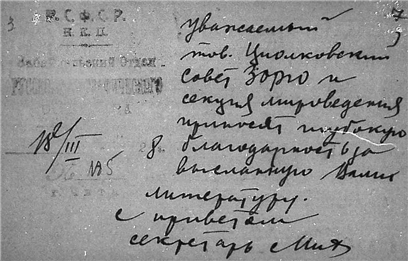 3
7
Р.С.Ф.С.Р.
Н.К.П.
Забайкальский Отдел
18/III 8.
№ 185
г. Чита
Уважаемый
тов. Циолковский
совет ЗОРГО и
секция мироведения
приносят глубокую
благодарность за
высланную Вами
литературу.
с приветом
секретарь